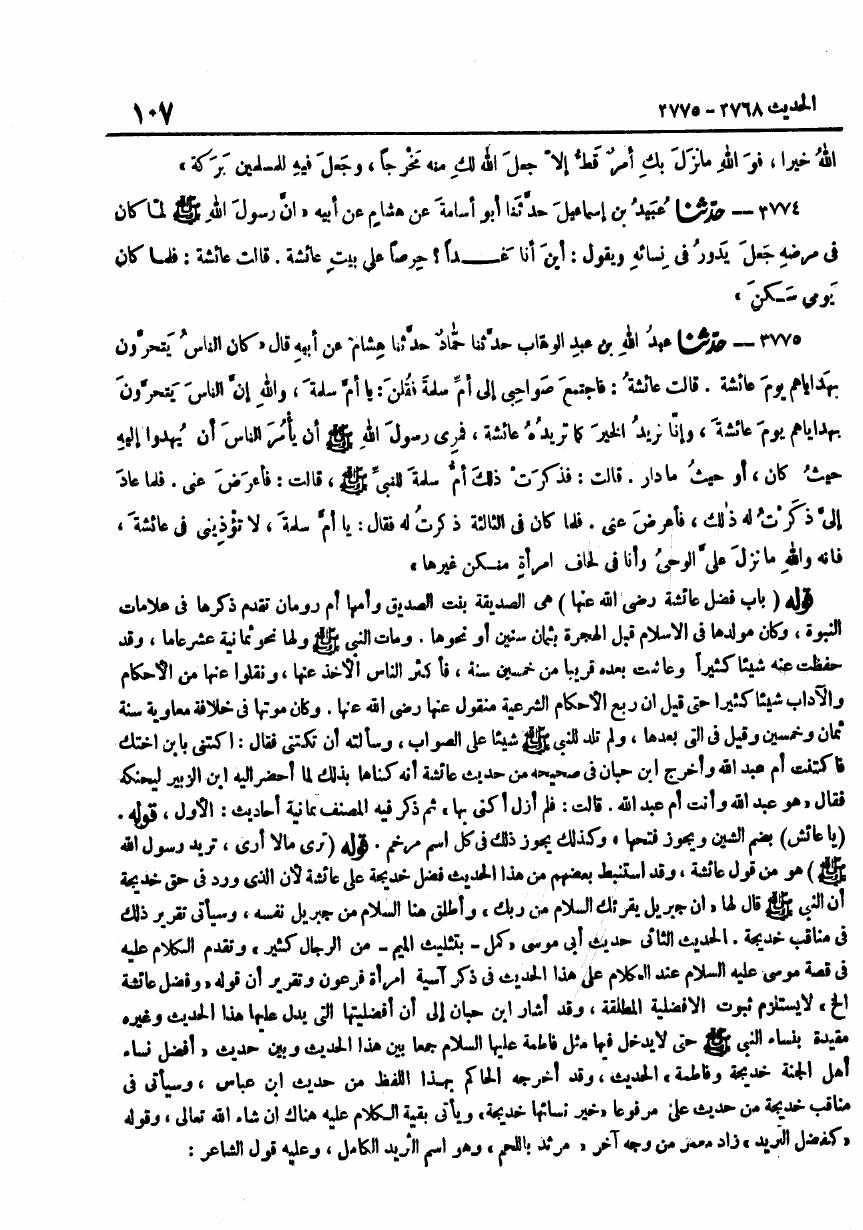 الحديث ٣٧٦٨ - ٣٧٧٥
١٠٧
اللهُ خيرا ، فوَ اللهِ مانزَلَ بكِ أمرٌ قَطُّ إلاّ جعلَ اللهُ لكِ منه مَخْرجاً ، وجَعلَ فيهِ للمسلمين بَرَكة »
٣٧٧٤ — حدّثنا عُبَيدُ بن إسماعيلَ حدَّثَنا أبو أسامةَ عن هشامٍ عن أبيه « انَّ رسولَ اللهِ ﷺ لمّا كان
فى مرضهِ جَعلَ يَدورُ فى نِسائهِ ويقول : أينَ أنا غَـــداً ؟ حِرصاً على بيتِ عائشة . قالت عائشة : فلمـا كان
يَومى سَـكنَ »
٣٧٧٥ — حدّثنا عبدُ اللهِ بن عبدِ الوهّاب حدَّثنا حمّادٌ حدَّثنا هِشامٌ عن أبيهِ قال « كان الناسُ يَتحرَّون
بهداياهم يومَ عائشة . قالت عائشةُ : فاجتمعَ صَواحِبى إلى أمِّ سلمةَ فقُلنَ : يا أمَّ سلمةَ ، واللهِ إنَّ الناسَ يَتحرَّونَ
بهداياهم يومَ عائشةَ ، وإنّا نريدُ الخيرَ كما تريدُهُ عائشة ، فمرِى رسولَ اللهِ ﷺ أن يأمُرَ الناسَ أن يُهدوا إليهِ
حيثُ كان ، أو حيثُ مادار . قالت : فذكرَتْ ذلكَ أمُّ سلمةَ للنبىِّ ﷺ ، قالت : فأعرَضَ عنى . فلما عادَ
إلىَّ ذكَرْتُ له ذلك ، فأعرضَ عنى . فلما كان فى الثالثة ذكرتُ له فقال : يا أمَّ سلمةَ ، لا تؤذِينى فى عائشةَ ،
فانه واللهِ مانزلَ علىَّ الوحىُ وأنا فى لحاف امرأةٍ منـكن غيرها »
قوله ( باب فضل عائشة رضى الله عنها ) هى الصديقة بنت الصديق وأمها أم رومان تقدم ذكرها فى علامات
النبوة ، وكان مولدها فى الاسلام قبل الهجرة بثمان سنين أو نحوها . ومات النبى ﷺ ولها نحو ثمانية عشر عاما ، وقد
حفظت عنه شيئا كثيراً وعاشت بعده قريبا من خمسين سنة ، فأكثر الناس الأخذ عنها ، ونقلوا عنها من الأحكام
والآداب شيئا كثيرا حتى قيل ان ربع الأحكام الشرعية منقول عنها رضى الله عنها . وكان موتها فى خلافة معاوية سنة
ثمان وخمسين وقيل فى التى بعدها ، ولم تلد للنبى ﷺ شيئا على الصواب ، وسألته أن تكتنى فقال : اكتنى بابن اختك
فاكتنت أم عبد الله وأخرج ابن حبان فى صحيحه من حديث عائشة أنه كناها بذلك لما أحضر اليه ابن الزبير ليحنكه
فقال « هو عبد الله وأنت أم عبد الله . قالت : فلم أزل أكنى بها » ثم ذكر فيه المصنف ثمانية أحاديث : الأول ، قوله .
(يا عائش) بضم الشين ويجوز فتحها ، وكذلك يجوز ذلك فى كل اسم مرخم . قوله (ترى مالا أرى ، تريد رسول الله
ﷺ ) هو من قول عائشة ، وقد استنبط بعضهم من هذا الحديث فضل خديجة على عائشة لأن الذى ورد فى حق خديجة
أن النبى ﷺ قال لها « ان جبريل يقرئك السلام من ربك » وأطلق هنا السلام من جبريل نفسه ، وسيأتى تقرير ذلك
فى مناقب خديجة . الحديث الثانى حديث أبى موسى « كمل - بتثليث الميم - من الرجال كثير » وتقدم الكلام عليه
فى قصة موسى عليه السلام عند الكلام على هذا الحديث فى ذكر آسية امرأة فرعون وتقرير أن قوله « وفضل عائشة
الخ » لايستلزم ثبوت الافضلية المطلقة ، وقد أشار ابن حبان إلى أن أفضليتها التى يدل عليها هذا الحديث وغيره
مقيدة بنساء النبى ﷺ حتى لايدخل فيها مثل فاطمة عليها السلام جمعا بين هذا الحديث وبين حديث « أفضل نساء
أهل الجنة خديجة وفاطمة » الحديث ، وقد أخرجه الحاكم بهـذا اللفظ من حديث ابن عباس ، وسيأتى فى
مناقب خديجة من حديث على مرفوعا « خير نسائها خديجة » ويأتى بقية الـكلام عليه هناك ان شاء الله تعالى ، وقوله
« كفضل الثريد » زاد معمر من وجه آخر « مرثد باللحم » وهو اسم الثريد الكامل ، وعليه قول الشاعر :